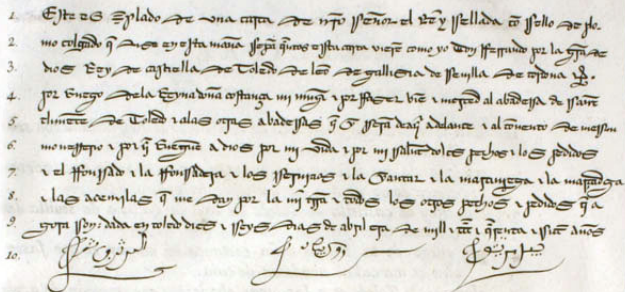 1. Este es traslado de una carta de nro señor el Rey sellada cō sello de plo
2. mo colgado q̄ dise en esta maña sepā quātos esta carta vierē como yo don fferrando por la grā de
3. dios Rey de castiella de Toledo de leō de gallisia de seuilla de cordoua
4. por Ruego dela Reyna doña costança mi mug̃ i por faser biē i merçed al abadessa de sant
5. climēte de Toledo i alas otras abadessas q̄ serā daq̄ adelante i al cōuento de
6. monesterio i por q̄ Rueguē a dios por mi vida i por mi salut los pechos i los pedidos
7. i el ffonsado i la ffonsadera i los seruiçios i la i la i la
8. i las azemilas q̄ me dan por la mi trrā i todos los otros pechos i pedidos q̄ a
9. gora son dada en toledo dies i seys dias de abril era de mill i ccc i q̄renta i siete años
10.